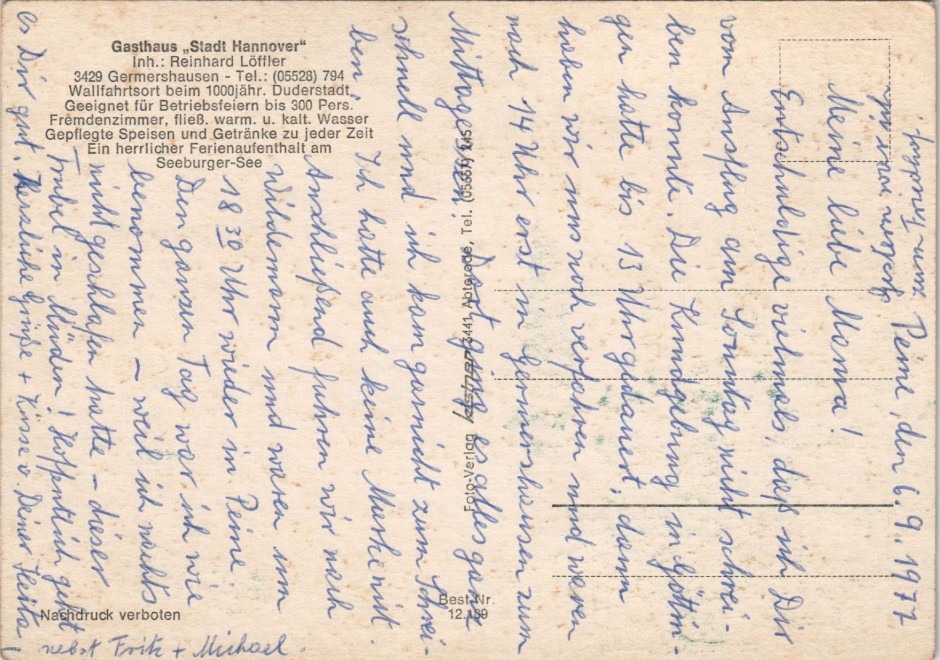 Gasthaus „Stadt Hannover“
Inh.: Reinhard Löffler
3429 Germershausen - Tel.: (05528) 794
Wallfahrtsort beim 1000jähr. Duderstadt
Geeignet für Betriebsfeiern bis 300 Pers.
Fremdenzimmer, fließ. warm. u. kalt. Wasser
Gepflegte Speisen und Getränke zu jeder Zeit
Ein herrlicher Ferienaufenthalt am
Seeburger-See
Peine, den 6.9.1977
Meine liebe Mama!
Entschuldige vielmals, daß ich Dir
vom Ausflug am Sonntag nicht schrei-
ben konnte. Die Kundgebung in Göttin-
gen hatte bis 13 Uhr gedauert, dann
haben wir uns noch verfahren und waren
nach 14 Uhr erst in Germershausen zum
Mittagessen. Dort ging es alles ganz
schnell und ich kam garnicht zum Schrei-
ben. Ich hatte auch keine Marke mit.
Anschließend fuhren wir nach
Wildemann und waren um
18 30 Uhr wieder in Peine.
Den ganzen Tag war ich wie
benommen – weil ich nachts
nicht geschlafen hatte – dieser
Trubel in Münden! Hoffentlich geht
es Dir gut. Herzliche Grüße + Küsse v. Deiner
nebst Fritz + Michael.
Foto-Verlag 3441 Abterode, Tel. (05657) 245
Nachdruck verboten
Best-Nr.
12.159